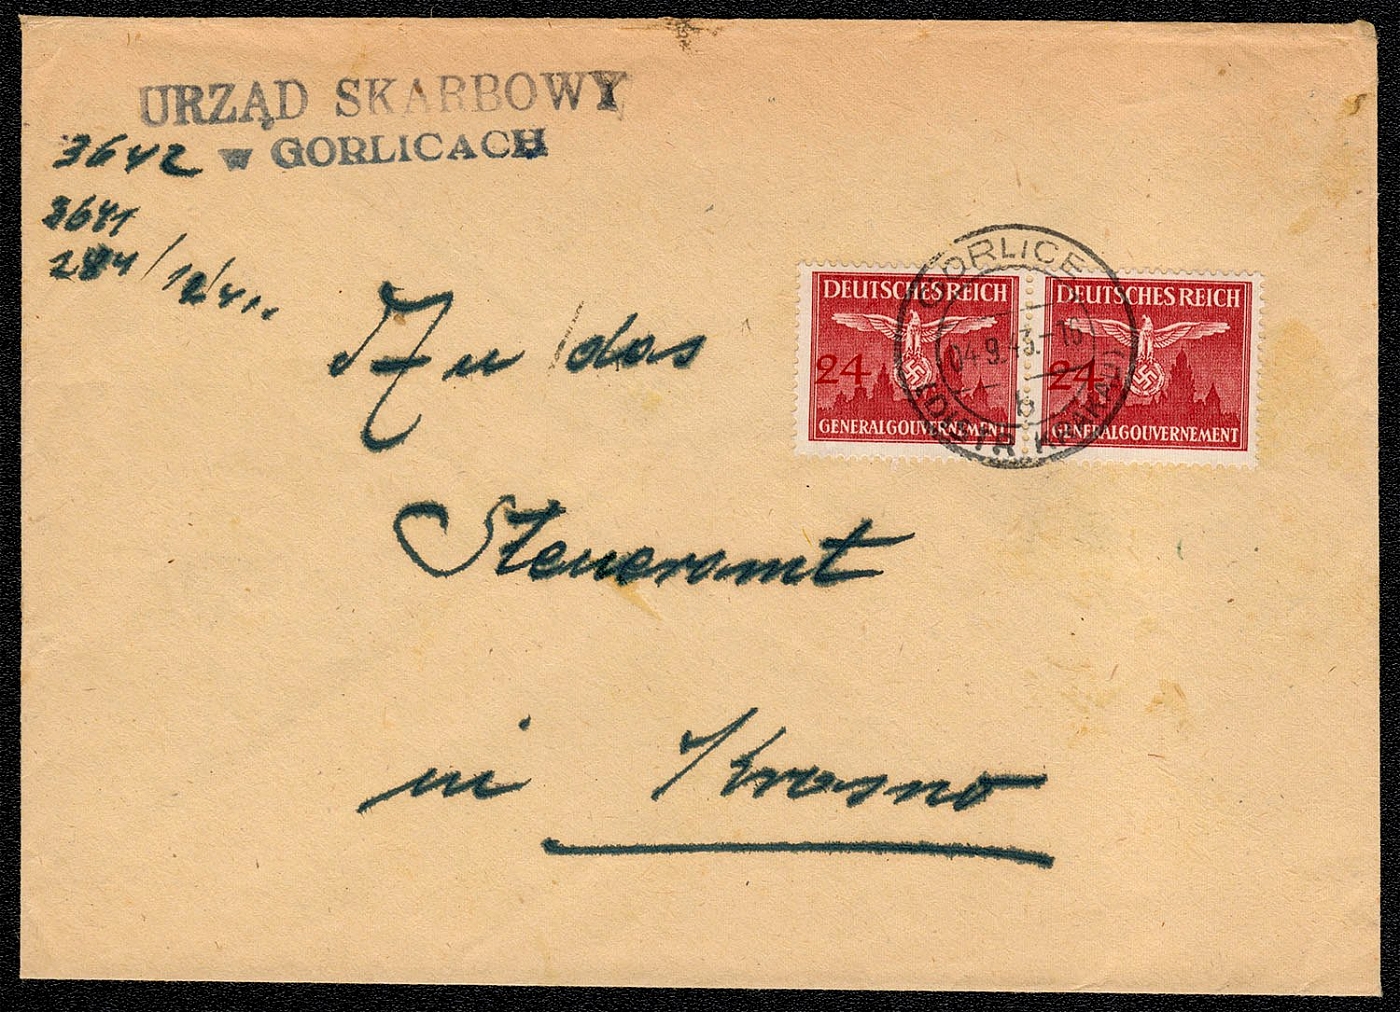 URZĄD SKARBOWY
w GORLICACH
3642
3641
284/
An das
Steueramt
in Krosno
DEUTSCHES REICH
24
GENERALGOUVERNEMENT
DEUTSCHES REICH
24
GENERALGOUVERNEMENT
GORLICE
04.9.43.-15
b
(DISTR. KRAKAU)